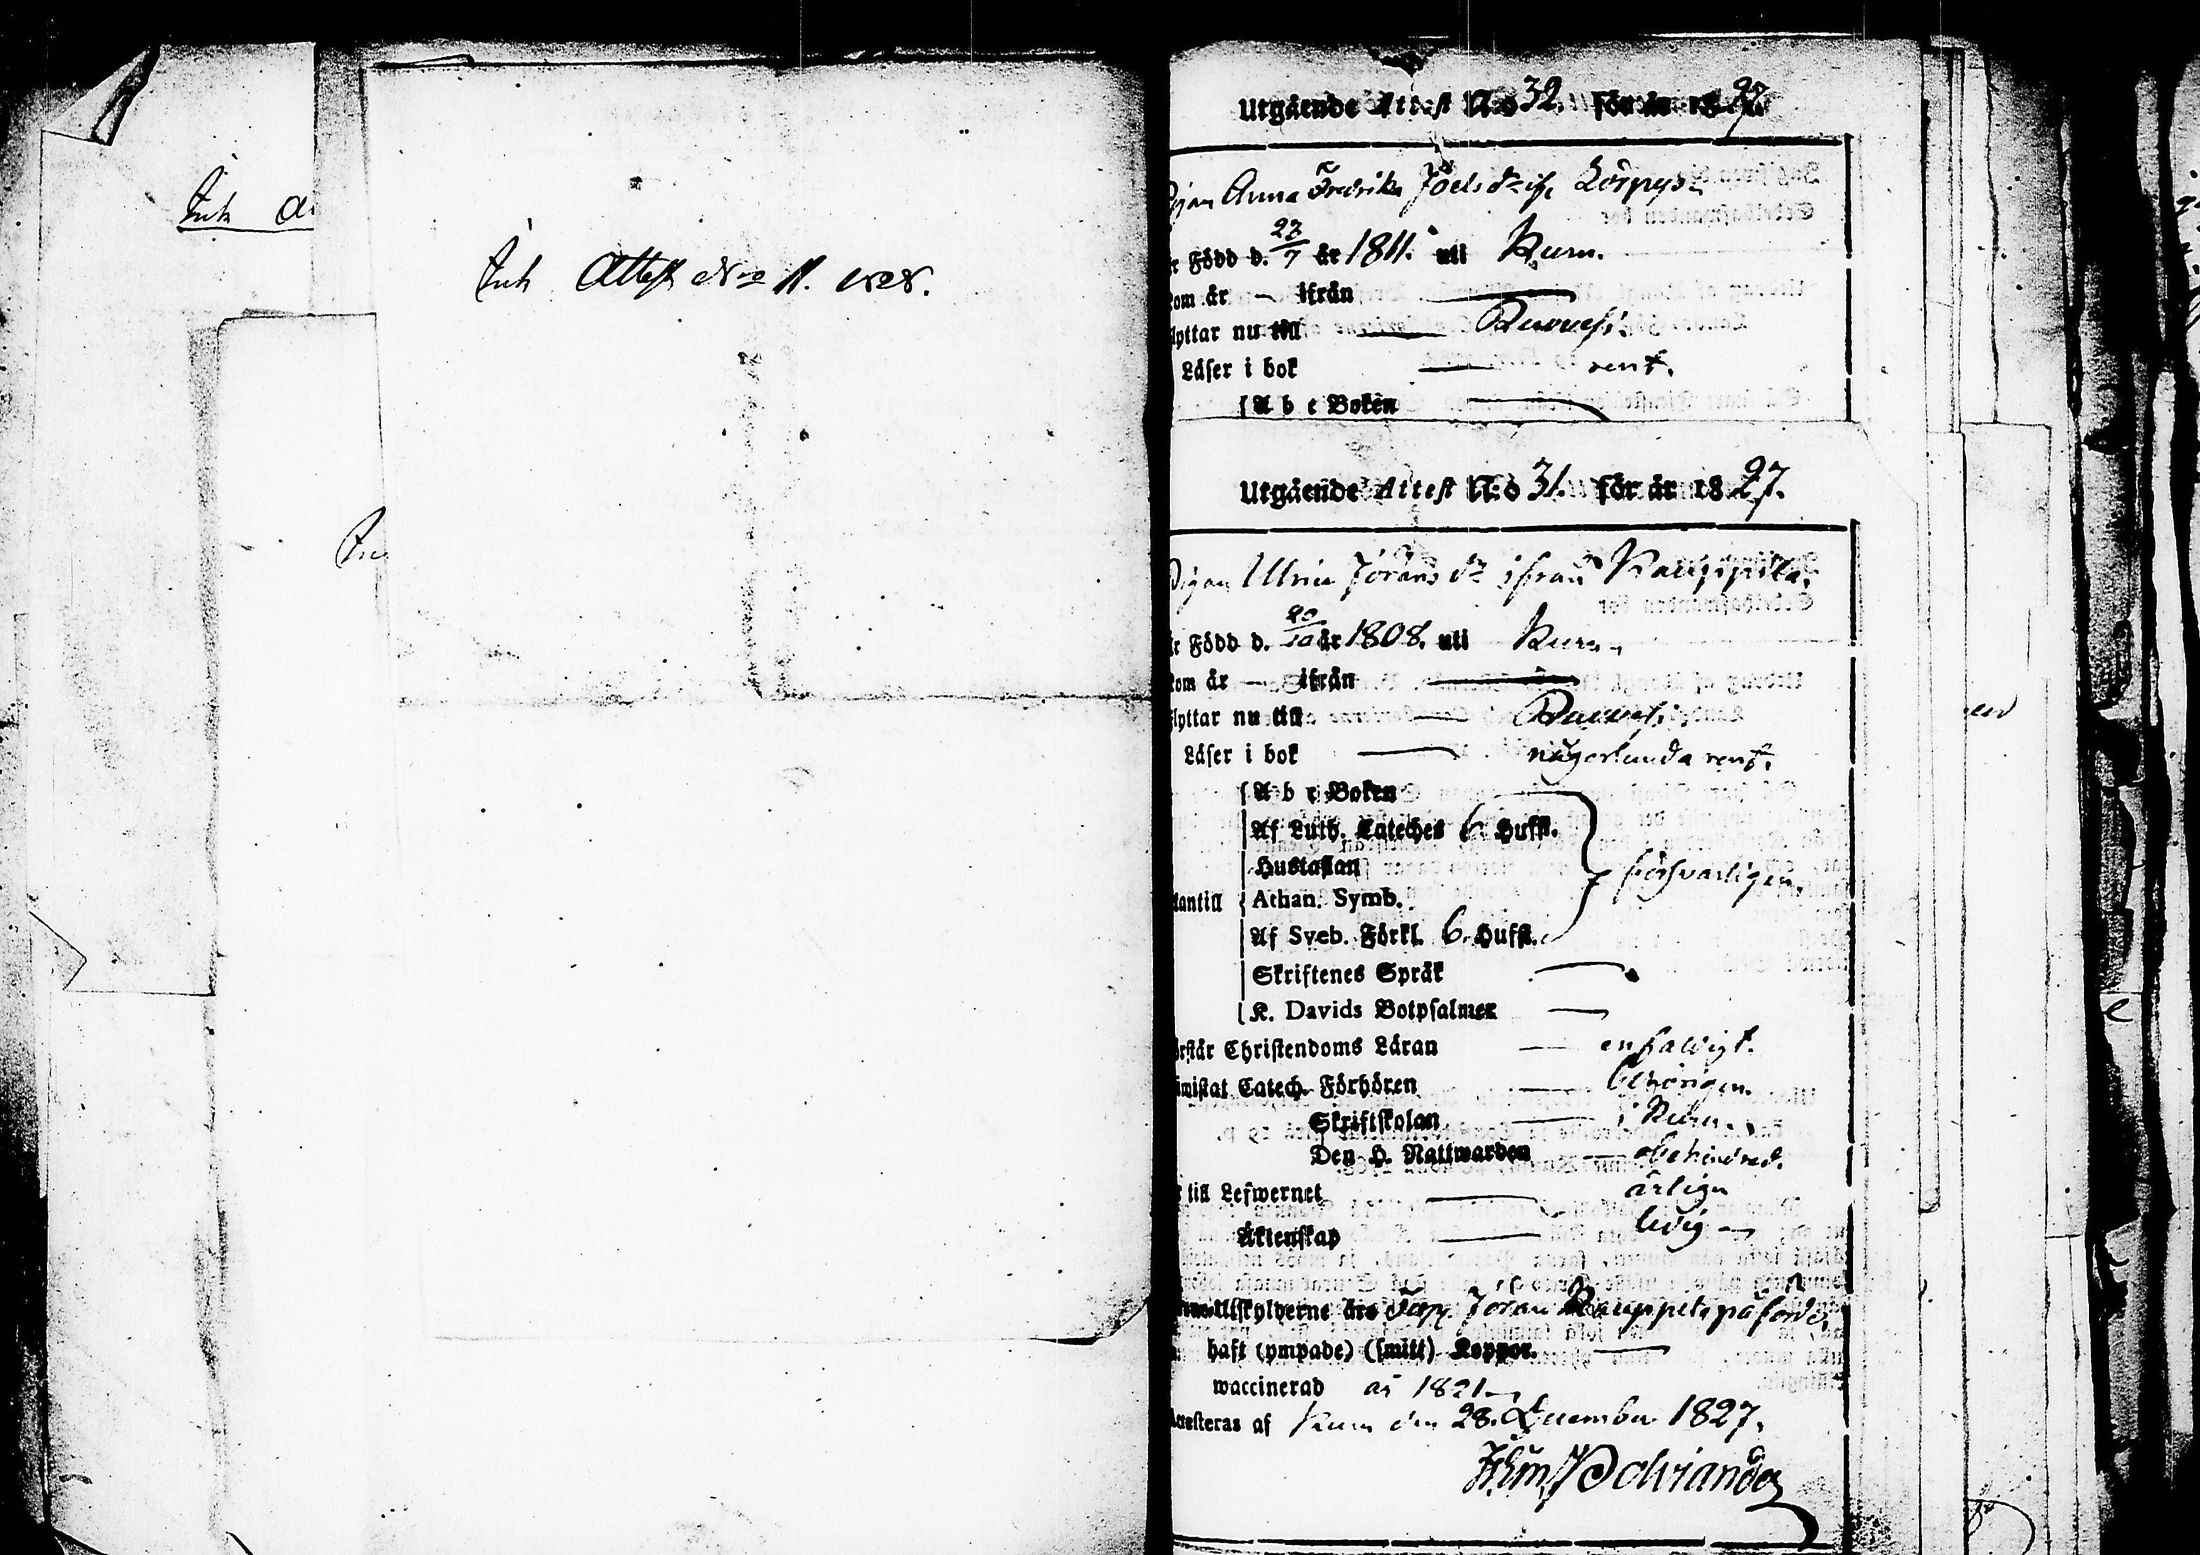 Ink
Ink Attest N:o 11. 1828.
Utgående Attest N:o 32. för år 1827.
Pigan Anna Fredrika Joels dr ifr.
Född d. 27/7 år 1811. uti Kumo.
kom år — ifrån
flyttar nu till Ruovesi.
Läser i bok rent.
A b c Boken
Utgående Attest N:o 31. för år 1827.
Pigan Ulrica Jörans dr ifrån
Född d. 20/10 år 1808. uti Kumo
kom år — ifrån
flyttar nu till Ruovesi.
Läser i bok någorlunda rent.
A b c Boken
Af Luth. Cateches 6. Hufst.
Hustaflan försvarligen.
utantill Athan. Symb.
Af Sveb. Förkl. 6. Hufst.
Skriftenes Språk
K. Davids Botpsalmer
förstår Christendoms Läran enfaldigt.
bewistat Catech. Förhören behörigen.
Skriftskolan i Kumo.
Den H. Nattwarden obehindrad.
är till Lefwernet ärlig
Äktenskap ledig —
Utskylderne äro Torp. Jöran påförde.
haft (ympade) (smitt) Koppor.
waccinerad år 1821
Attesteras af Kumo den 28. December 1827.